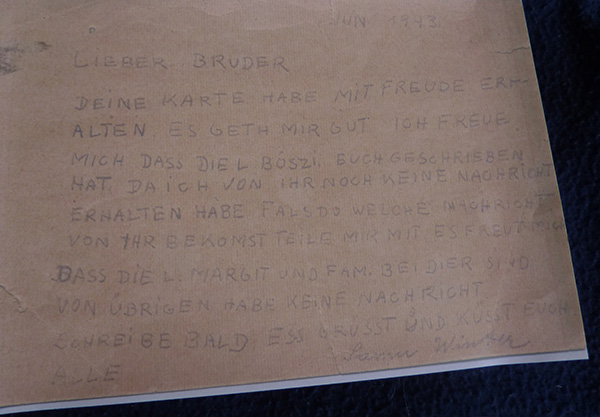 JUN 1943
LIEBER BRUDER
DEINE KARTE HABE MIT FREUDE ERH-
ALTEN. ES GETH MIR GUT ICH FREUE
MICH DASS DIE L BÖSZI. EUCH GESCHRIEBEN
HAT. DA ICH VON IHR NOCH KEINE NACHRICHT
ERHALTEN HABE FALSDO WELCHE NACHRICHT
VON IHR BEKOMST TEILE MIR MIT ES FREUT MICH
DASS DIE L. MARGIT UND FAM. BEI DIER SIND
VON ÜBRIGEN HABE KEINE NACHRICHT
SCHREIBE BALD ESS GRÜSST UND KÜSST EUCH
ALLE